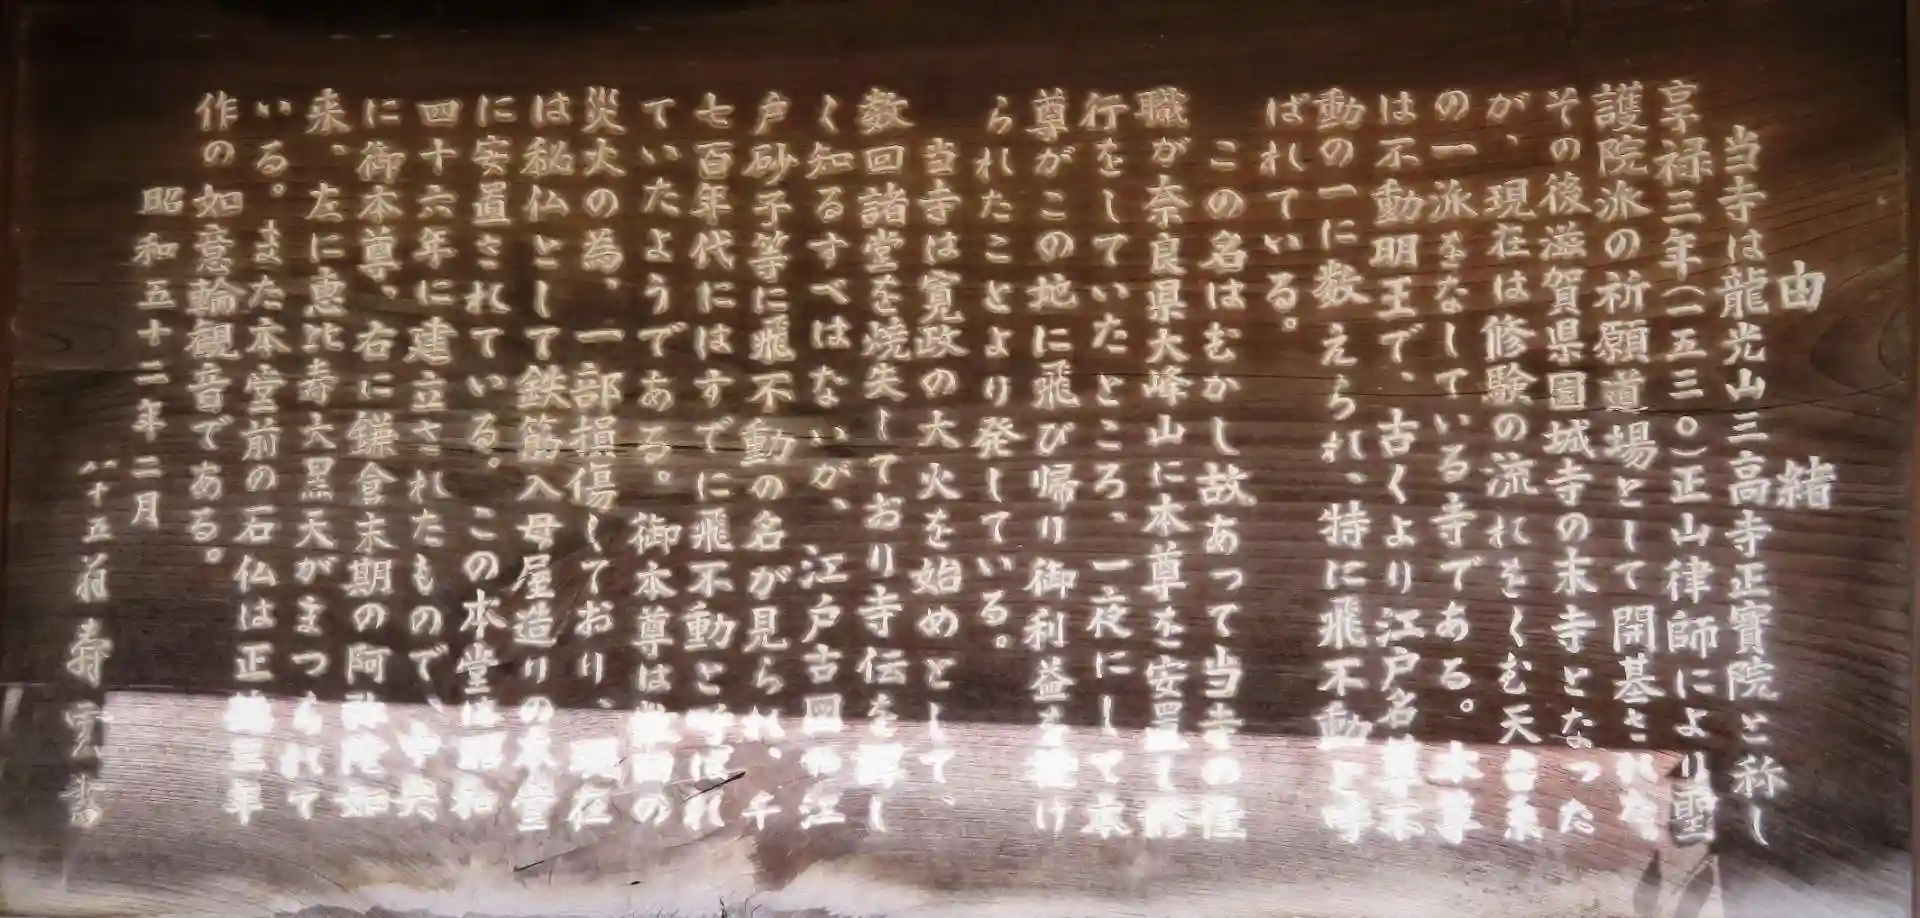 由緒
当寺は龍光山三高寺正寳院と称し
享禄三年(一五三〇)正山律師により聖
護院派の祈願道場として開基され
その後滋賀県園城寺の末寺となった
が、現在は修験の流れをくむ天台系
の一派をなしている寺である。本尊
は不動明王で、古くより江戸名草不
動の一に数えられ、特に飛不動と呼
ばれている。
この名はむかし故あって当寺の住
職が奈良県大峰山に本尊を安置して修
行をしていたところ、一夜にして本
尊がこの地に飛び帰り御利益を授け
られたことより発している。
当寺は寛政の大火を始めとして、
数回諸堂を焼失しており寺伝を詳し
く知るすべはないが、江戸古図や江
戸砂子等に飛不動の名が見られ、千
七百年代にはすでに飛不動と呼ばれ
ていたようである。御本尊は数回の
災火の為、一部損傷しており、現在
は秘仏として鉄筋入母屋造りの本堂
に安置されている。この本堂は昭和
四十六年に建立されたもので、中央
に御本尊、右に鎌倉末期の阿弥陀如
来、左に恵比寿大黒天がまつられて
いる。また本堂前の石仏は正徳三年
作の如意輪観音である。
昭和五十二年二月
八十五翁 壽 書